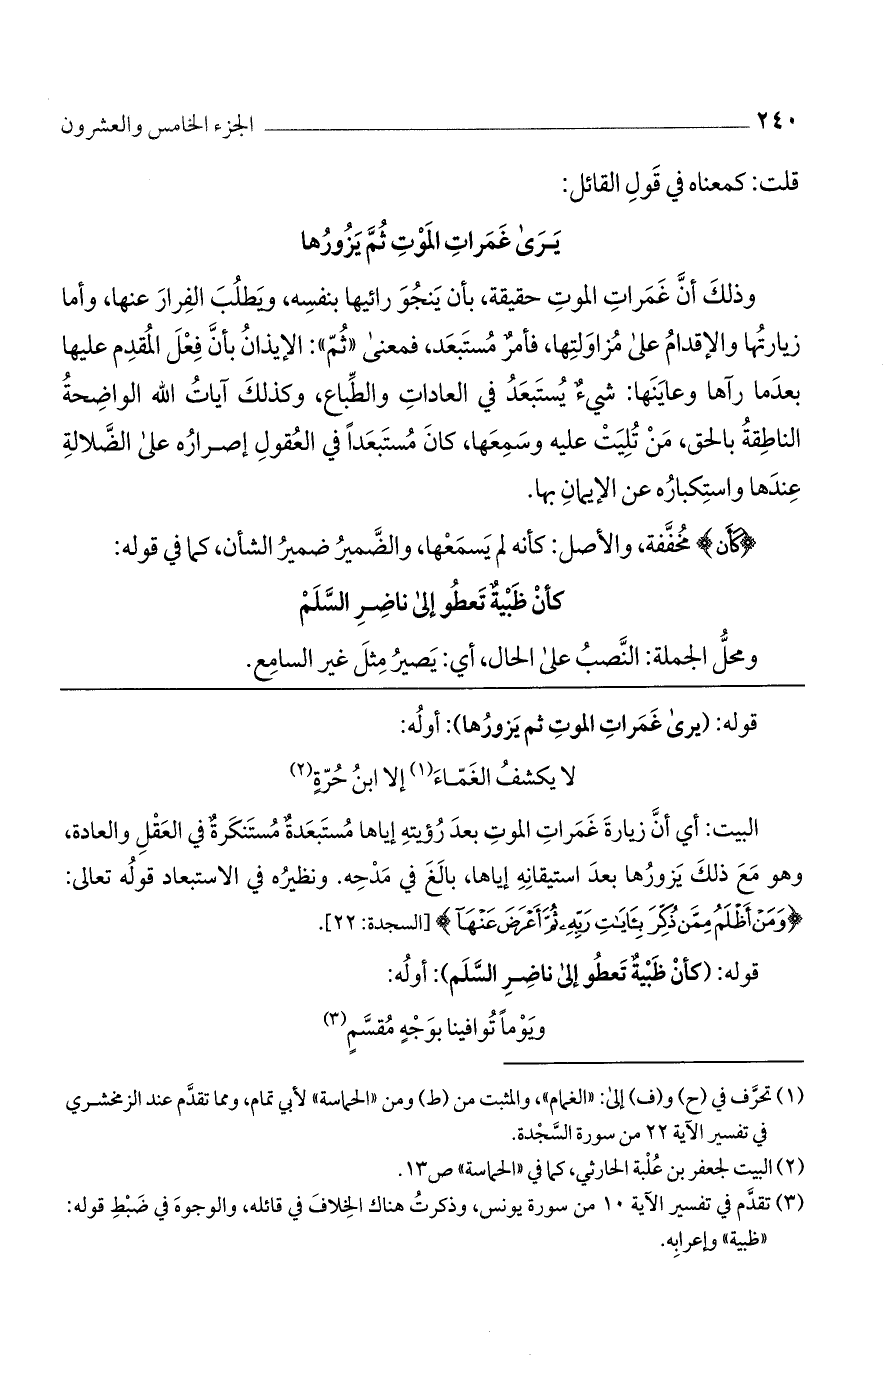 ٢٤٠ الجزء الخامس والعشرون
قلت: كمعناه في قَولِ القائل:
يَـرَىٰ غَمَراتِ المَوْتِ ثُمَّ يَزُورُها
وذلكَ أنَّ غَمَراتِ الموتِ حقيقة، بأن يَنجُوَ رائيها بنفسِه، ويَطلُبَ الفِرارَ عنها، وأما
زيارتُها والإقدامُ علىٰ مُزاوَلتِها، فأمرٌ مُستَبعَد، فمعنىٰ «ثُمّ»: الإيذانُ بأنَّ فِعْلَ المُقدِم عليها
بعدَما رآها وعايَنَها: شيءٌ يُستَبعَدُ في العاداتِ والطِّباع، وكذلكَ آياتُ الله الواضِحةُ
الناطِقةُ بالحق، مَنْ تُلِيَتْ عليه وسَمِعَها، كانَ مُستَبعَداً في العُقولِ إصـرارُه علىٰ الضَّلالةِ
عِندَها واستِكبارُه عن الإيمانِ بها.
﴿كَأَن﴾ مُخفَّفة، والأصل: كأنه لم يَسمَعْها، والضَّميرُ ضميرُ الشأن، كما في قوله:
كأنْ ظَبْيةٌ تَعطُو إلىٰ ناضِـرِ السَّلَمْ
ومحلُّ الجملة: النَّصبُ علىٰ الحال، أي: يَصيرُ مِثلَ غير السامِع.
قوله: (يرىٰ غَمَراتِ الموتِ ثم يَزورُها): أولُه:
لا يكشفُ الغَمّـاءَ(١) إلا ابنُ حُرّةٍ(٢)
البيت: أي أنَّ زيارةَ غَمَراتِ الموتِ بعدَ رُؤيتهِ إياها مُستَبعَدةٌ مُستَنكَرةٌ في العَقْلِ والعادة،
وهو مَعَ ذلكَ يَزورُها بعدَ استيقانِهِ إياها، بالَغَ في مَدْحِه. ونظيرُه في الاستبعاد قولُه تعالى:
﴿وَمَنْ أَظْلَمُ مِمَّن ذُكِّرَ بِـَٔايَـٰتِ رَبِّهِۦ ثُمَّ أَعْرَضَ عَنْهَآ﴾ [السجدة: ٢٢].
قوله: (كأنْ ظَبْيةٌ تَعطُو إلىٰ ناضِـرِ السَّلَم): أولُه:
ويَوْماً تُوافينا بوَجْهٍ مُقسَّمٍ(٣)
(١) تحرَّف في (ح) و(ف) إلىٰ: «الغمام»، والمثبت من (ط) ومن «الحماسة» لأبي تمام، ومما تقدَّم عند الزمخشـري
في تفسير الآية ٢٢ من سورة السَّجْدة.
(٢) البيت لجعفر بن عُلْبة الحارثي، كما في «الحماسة» ص١٣.
(٣) تقدَّم في تفسير الآية ١٠ من سورة يونس، وذكرتُ هناك الخِلافَ في قائله، والوجوهَ في ضَبْطِ قوله:
«ظبية» وإعرابِه.